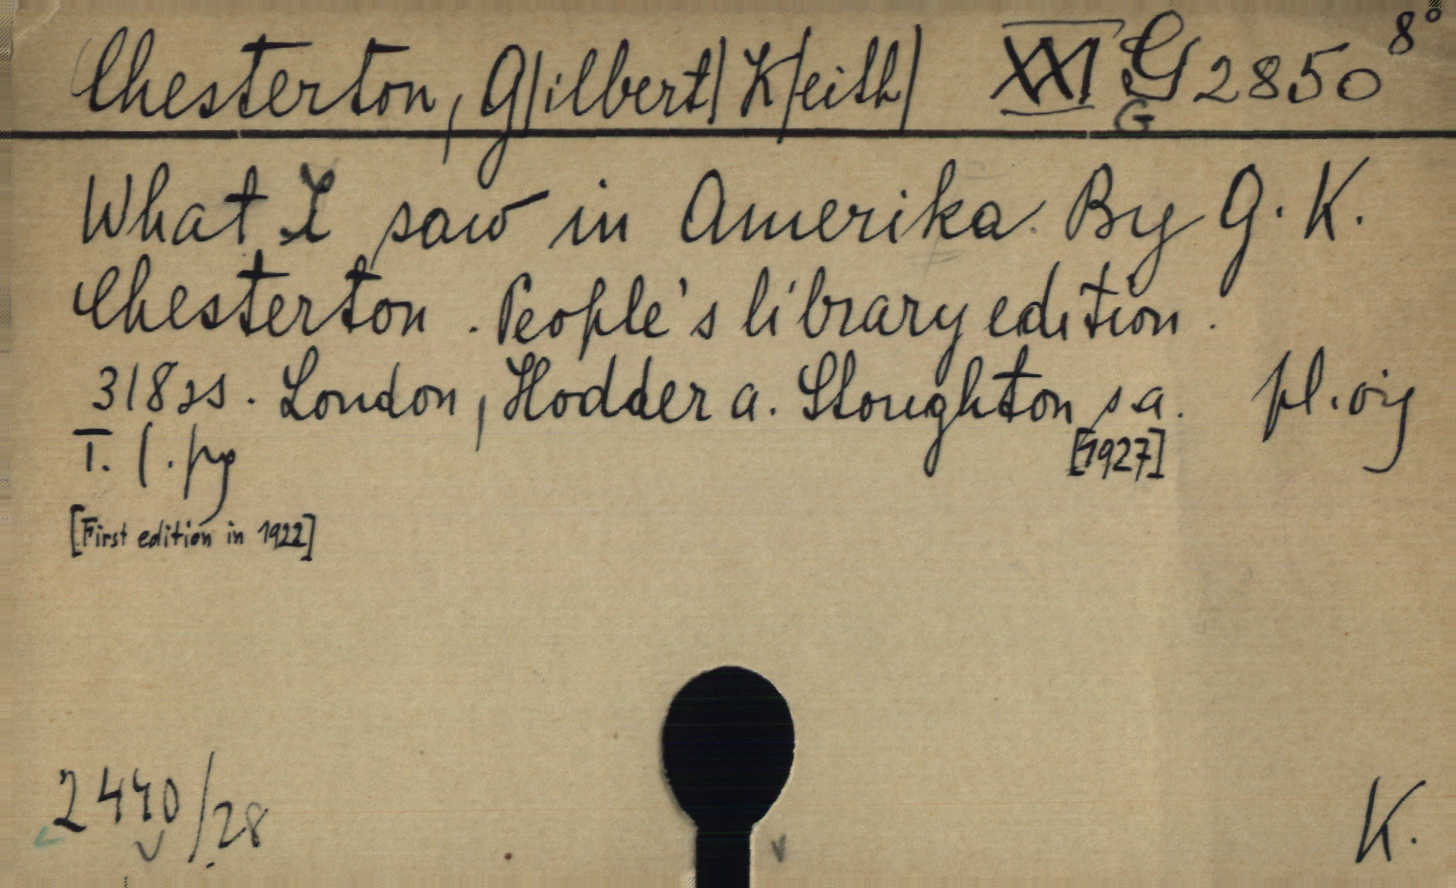 Chesterton, G/ilbert/ K/eith/ XXI G 2850 8°
G
What I saw in Amerika. By G. K.
Chesterton. People's library edition.
318 ss. London, Hodder a. Stoughton s.a. pł. oryg
[1927]
[First edition in 1922]
2440/28
K.